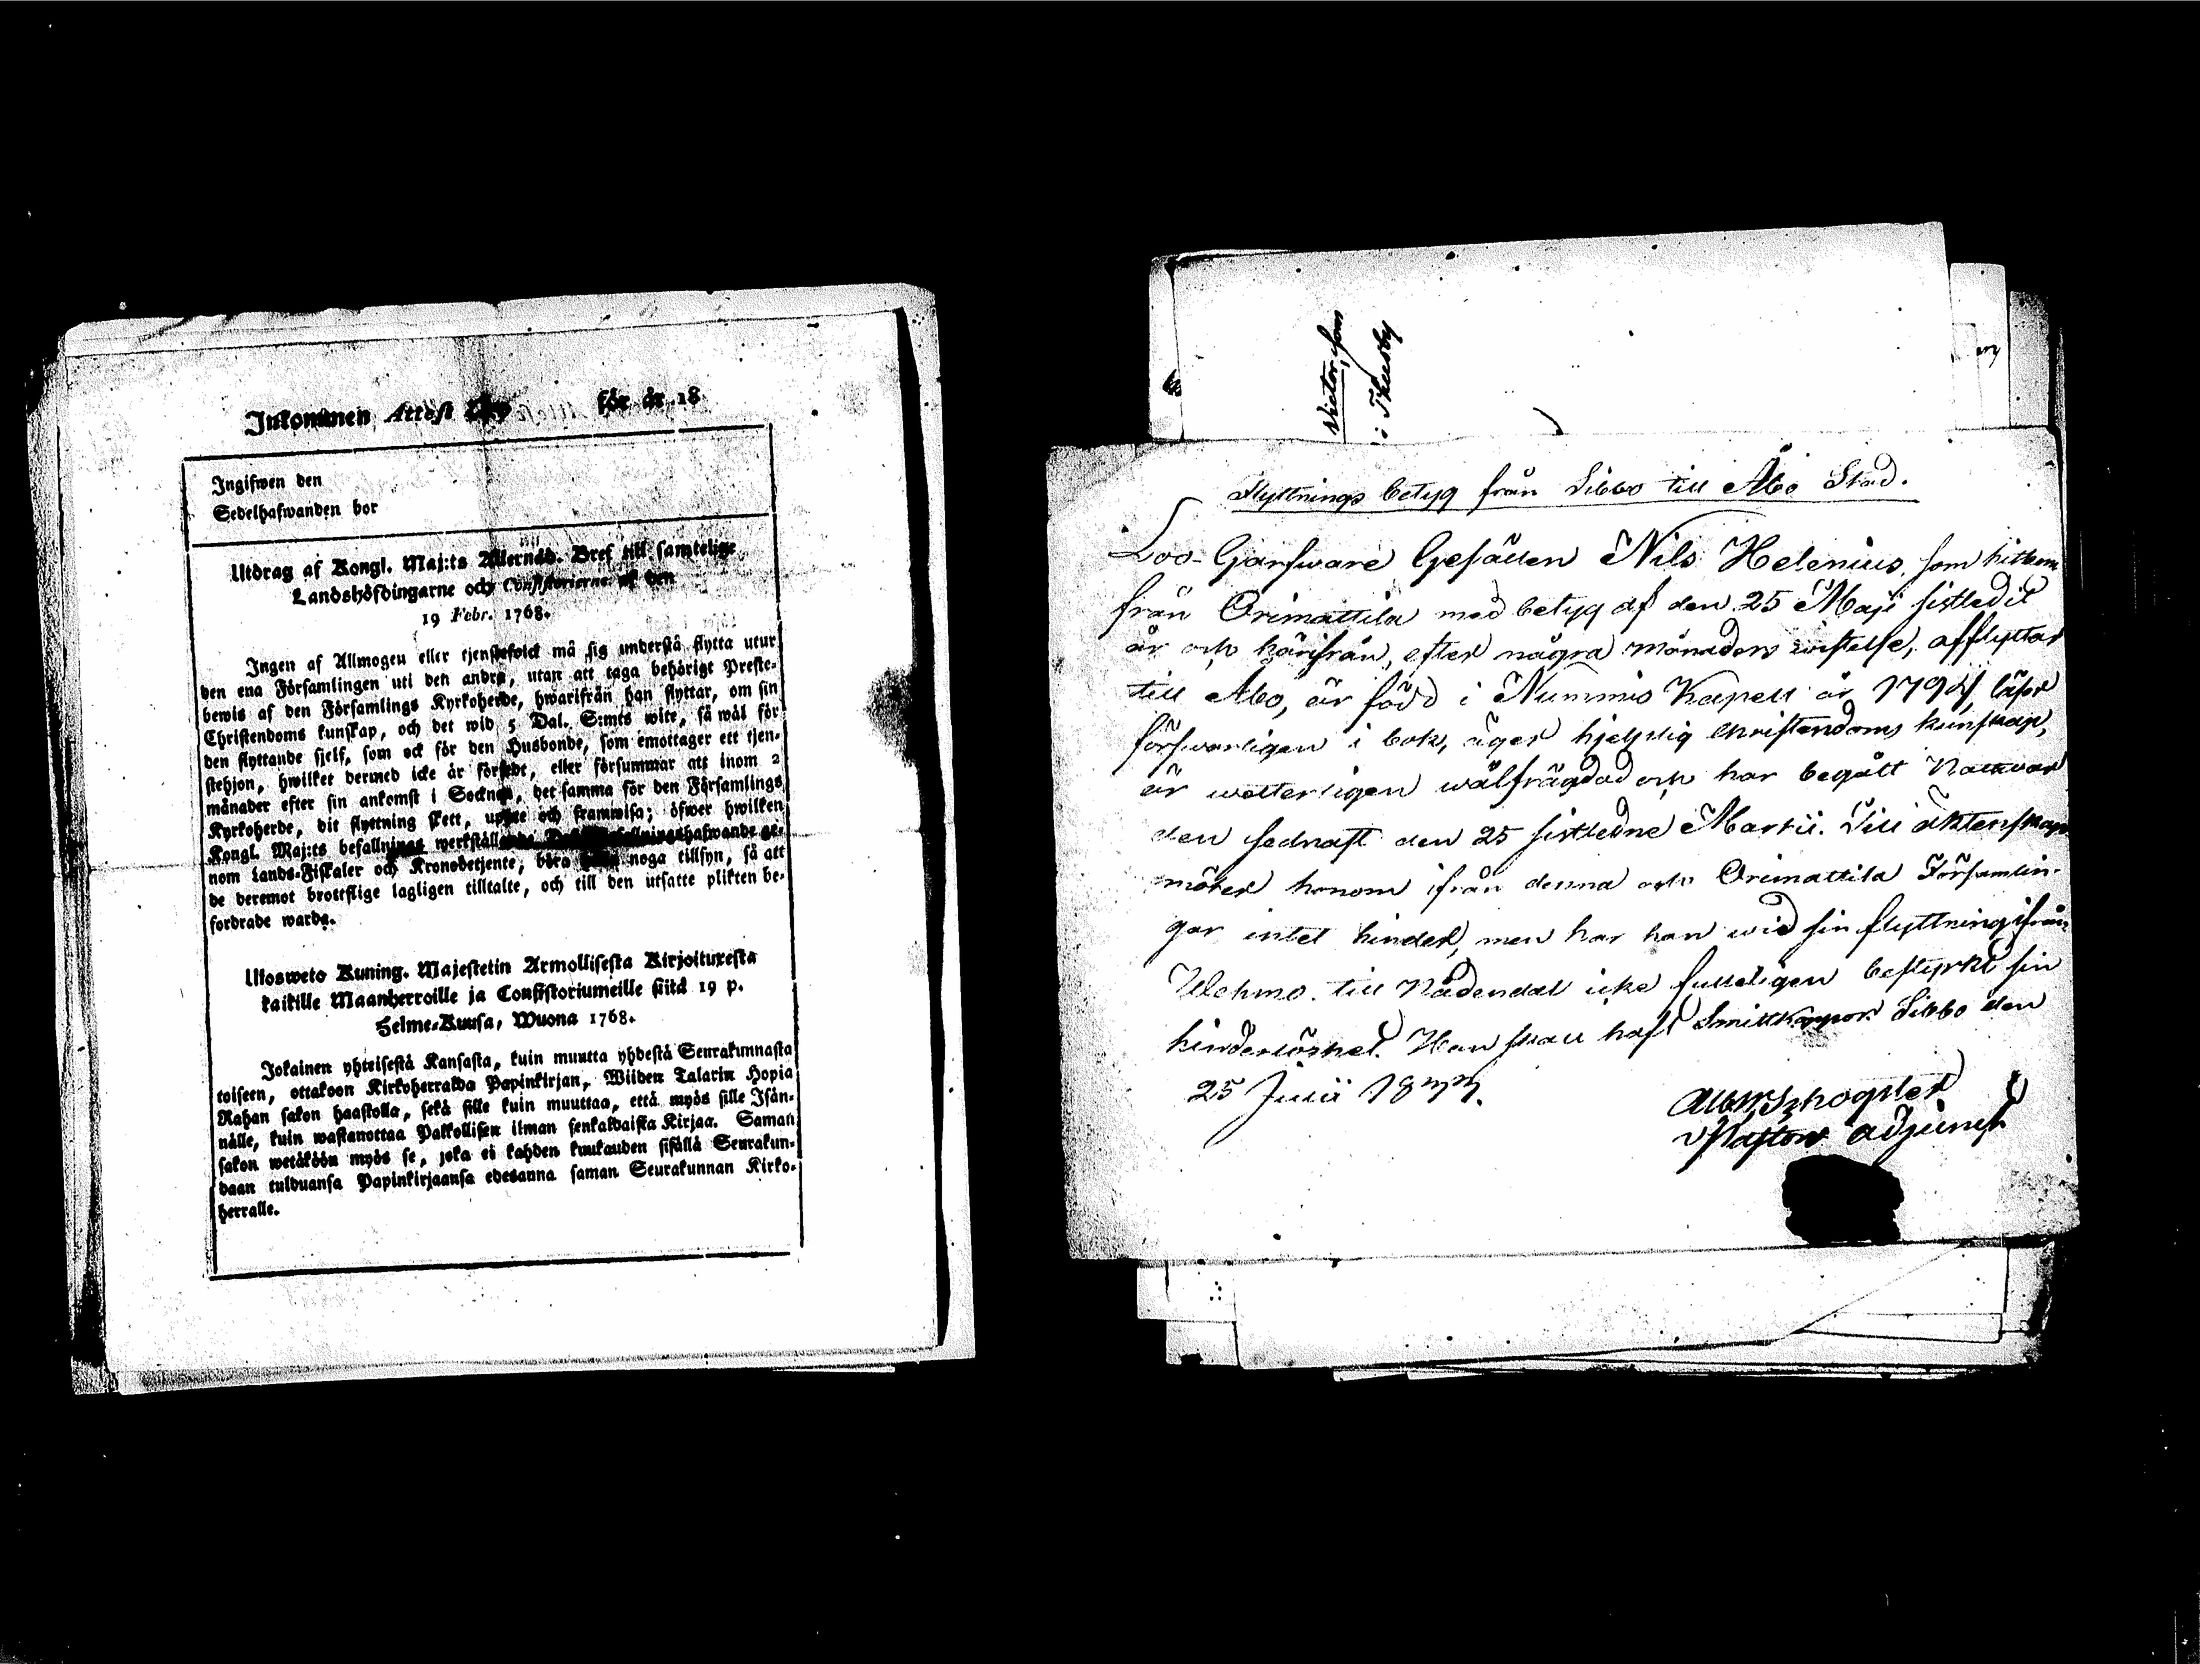 Inkommen Attest för år 18
Ingifwen den
Sedelhafwanden bor
Utdrag af Kongl. Maj:ts Allernåd. Bref till samtelige
Landshöfdingarne och Consistorierne af den
19 Febr. 1768.
Ingen af Allmogen eller tjenstefolck må sig understå flytta utur
den ena Församlingen uti den andra, utan att taga behörigt Preste-
bewis af den Församlings Kyrkoherde, hwarifrån han flyttar, om sin
Christendoms kunskap, och det wid 5 Dal. S:mts wite, så wäl för
den flyttande sjelf, som ock för den Husbonde, som emottager ett tjen-
stehjon, hwilket dermed icke är försedt, eller försummar att inom 2
månader efter sin ankomst i Socknen, det samma för den Församlings
Kyrkoherde, dit flyttning skett, uppte och framwisa; öfwer hwilken
Kongl. Maj:ts befallnings werkställande
nom Lands-Fiskaler och Kronobetjente, böra noga tillsyn, så att
de deremot brottslige lagligen tilltalte, och till den utsatte plikten be-
fordrade warda.
Ulosweto Kuning. Majestetin Armollisesta Kirjoituxesta
kaikille Maanherroille ja Consistoriumeille siitä 19 p.
Helme-Kuusa, Wuona 1768.
Jokainen yhteisestä Kansasta, kuin muutta yhdestä Seurakunnasta
toiseen, ottakoon Kirkoherralda Papinkirjan, Wiiden Talarin Hopia
Rahan sakon haastolla, sekä sille kuin muuttaa, että myös sille Isän-
nälle, kuin wastanottaa Palkollisen ilman senkaldaista Kirjaa. Saman
sakon wetäköön myös se, joka ei kahden kuukauden sisällä Seurakun-
daan tulduansa Papinkirjaansa edesanna saman Seurakunnan Kirko-
herralle.
Victor, som
i Thusby
Flyttnings betyg från Sibbo till Åbo Stad.
Loo-Garfware Gesällen Nils Helenius, som hitkom
från Orimattila med betyg af den 25 Maji sistledit
år och härifrån, efter några månaders wistelse, afflyttar
till Åbo, är född i Nummis Kapell år 1794, läser
förswarligen i bok, äger hjelplig Christendoms kunskap,
är wetterligen wälfrägdad och har begått Nattward
den sednast den 25 sistledne Martii. Till äktenskap
möter honom ifrån denna och Orimattila Församlin-
gar intet hinder, men har han wid sin flyttning ifrån
Wehmo till Nådendal icke fulleligen bestyrkt sin
hinderlöshet. Han skall haft Smittkoppor. Sibbo den
25 Julii 1822.
Pastors adjunct